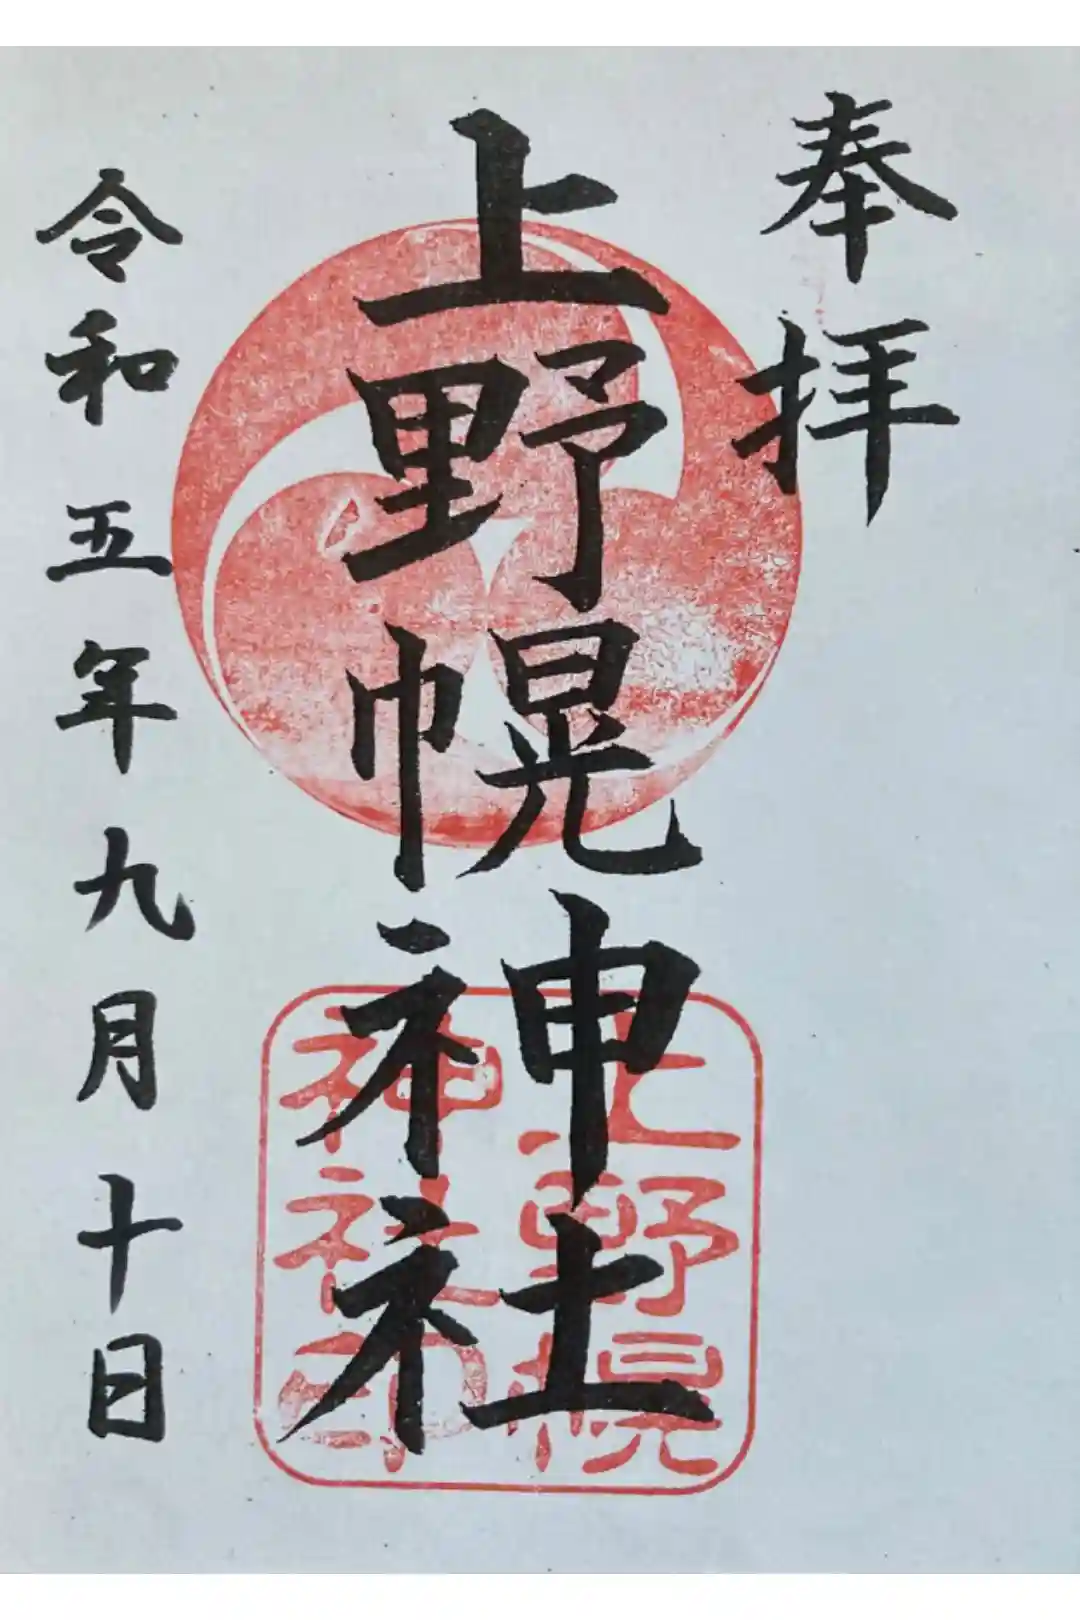 奉拝
上野幌神社
上野幌
神社印
令和五年九月十日